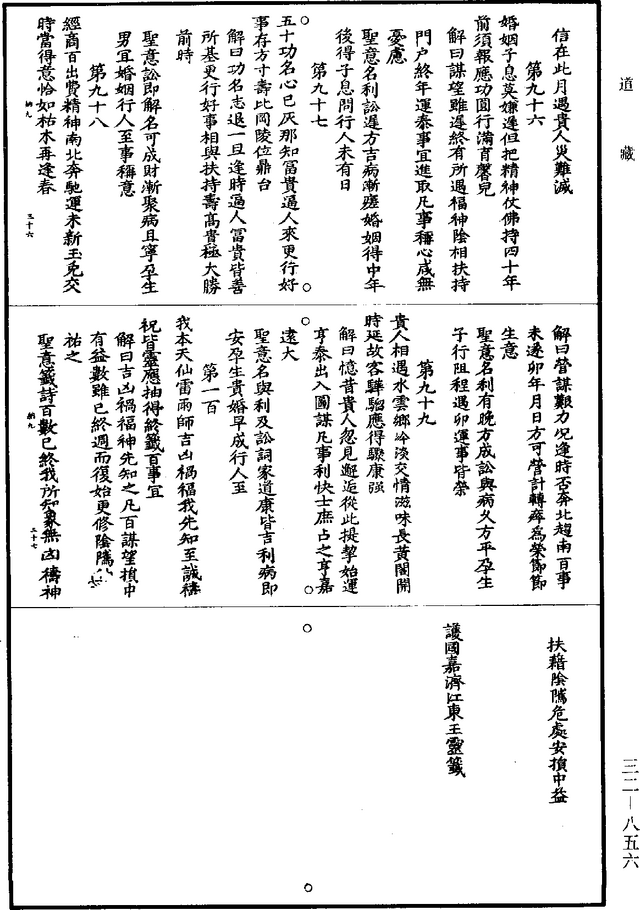 道藏
信在此月遇貴人災難滅
第九十六
婚姻子息莫嫌遲但把精神仗佛持四十年
前須報應功圓行滿育馨兒
解曰謀望雖遲終有所遇福神陰相扶持
門户終年運泰事宜進取凡事稱心咸無
憂慮
聖意名利訟遲方吉病漸瘥婚姻得中年
後得子息問行人未有日
第九十七
五十功名心已灰那知富貴逼人來更行好
事存方寸壽比岡陵位鼎台
解曰功名志退一旦逢時逼人富貴皆善
所基更行好事相與扶持壽高貴極大勝
前時
聖意訟即解名可成財漸聚病且寧孕生
男宜婚姻行人至事稱意
第九十八
經商百出費精神南北奔馳運未新玉兔交
時當得意恰如枯木再逢春
納九
三十六
解曰營謀艱力况逢時否奔北趨南百事
未遂卯年月日方可營計轉瘁為榮節節
生意
聖意名利有晚方成訟與病久方平孕生
子行阻程遇卯運事皆榮
第九十九
貴人相遇水雲鄉冷淡交情滋味長黃閣開
時延故客驊騮應得驟康强
解曰憶昔貴人忽見邂逅從此提挈始運
亨泰出入圖謀凡事利快士庶占之亨嘉
遠大
聖意名與利及訟詞家道康皆吉利病即
安孕生貴婚早成行人至
第一百
我本天仙雷雨師吉凶禍福我先知至誠禱
祝皆靈應抽得終籤百事宜
解曰吉凶禍福神先知之凡百謀望損中
有益數雖已終週而復始更修陰隲
祐之
聖意籤詩百數已終我所知象無凶禱神
納九
三十七
扶藉陰隲危處安損中益
護國嘉濟江東王靈籤
三二—八五六